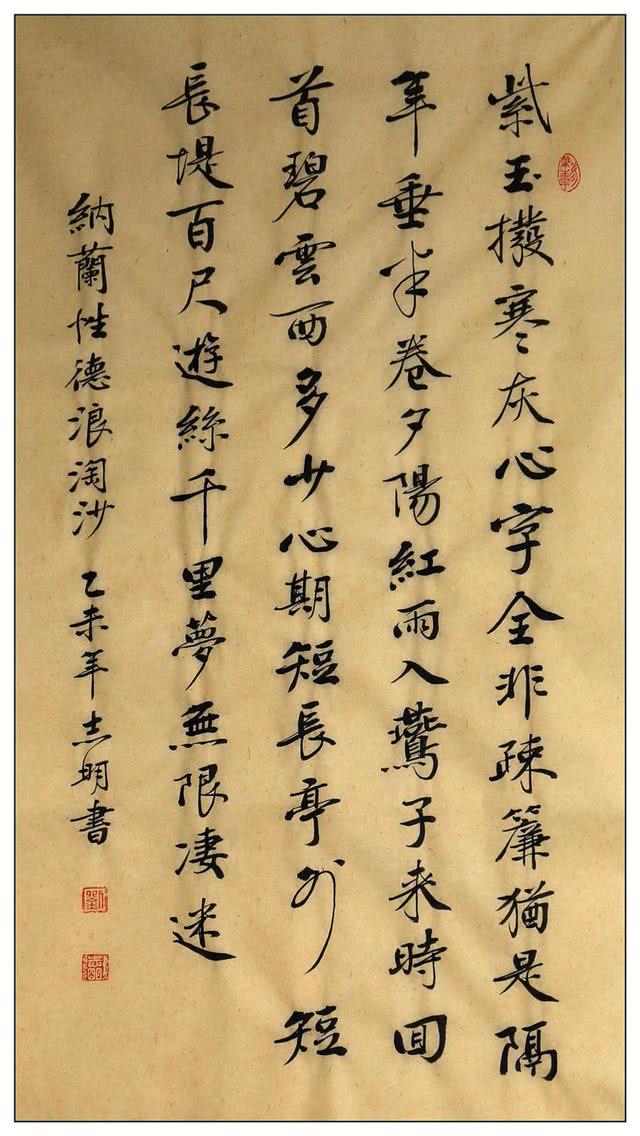 紫玉撥寒灰心字全非疎簾猶是隔
年垂半卷夕陽紅雨入鷰子来時回
首碧雲西多少心期短長亭外短
長堤百尺遊絲千里夢無限凄迷
納蘭性德浪淘沙 乙未年志明書